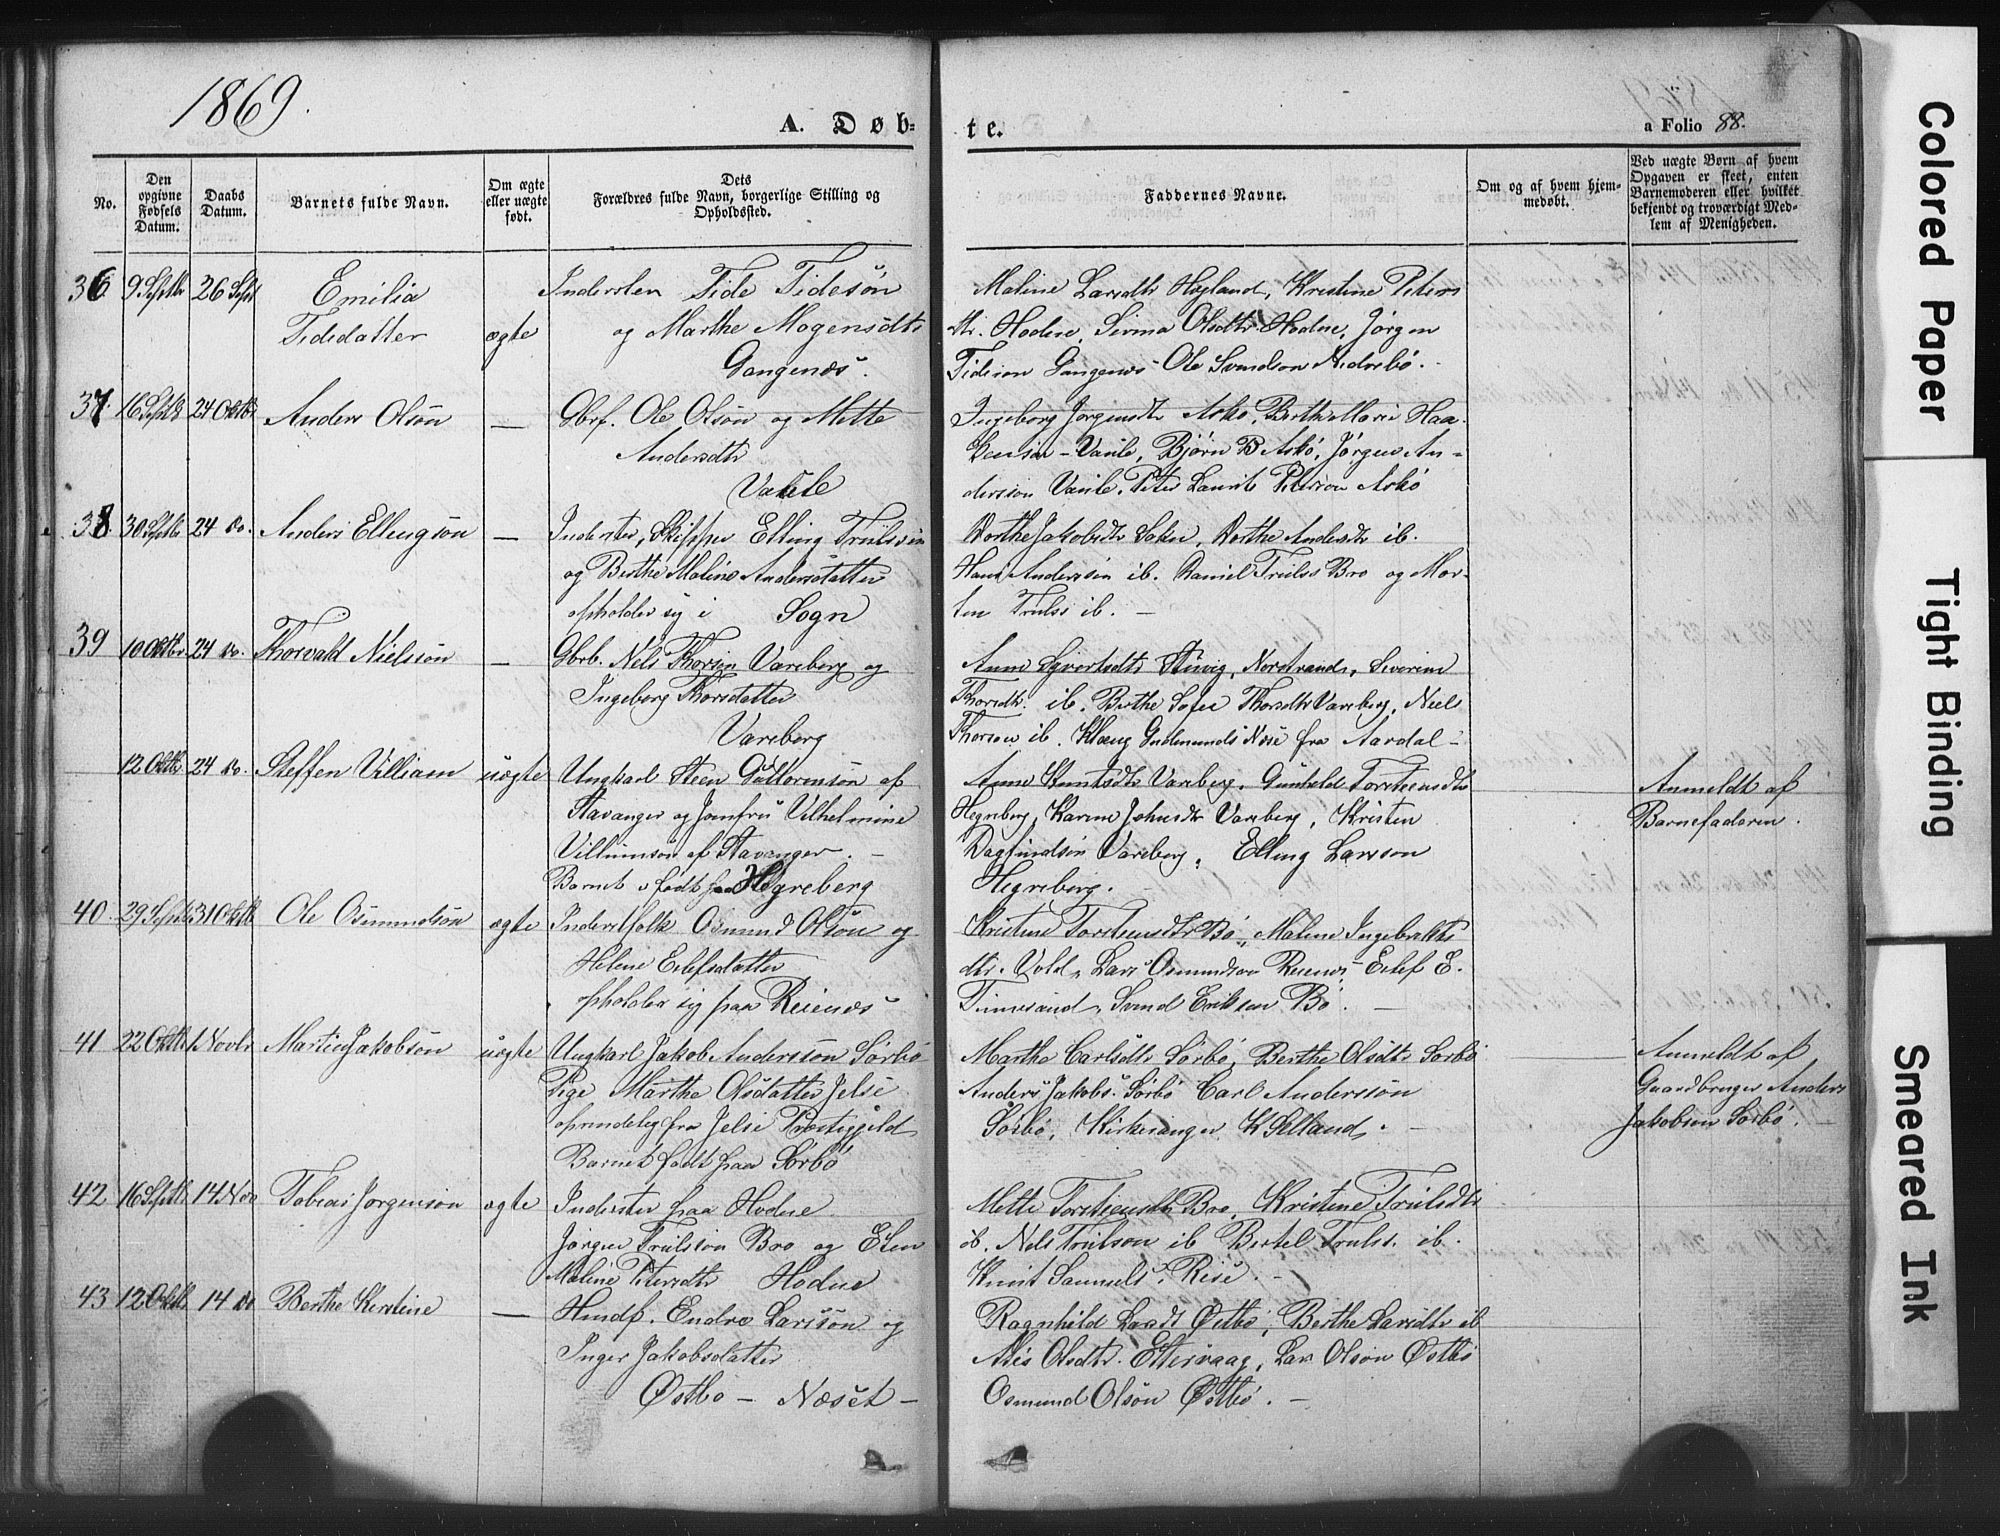 1869.
A. Døb=
te.
a Folio 88.
No.
Den opgivne Fødsels Datum.
Daabs Datum.
Barnets fulde Navn.
Om ægte eller uægte født.
Dets Forældres fulde Navn, borgerlige Stilling og Opholdssted.
Faddernes Navne.
Om og af hvem hjemmedøbt.
Ved uægte Børn af hvem Opgaven er skeet, enten Barnemoderen eller hvilket bekjendt og troværdigt Medlem af Menigheden.
36 9 Septbr 26 Sept Emilia
Tidesdatter ægte
Indersten Tide Tidesøn
og Marthe Mogensdtr
Gangenæs.
Maline Larsdtr Høgland, Kristine Peters
dtr. Hodne, Sirina Olsdtr Hodne, Jørgen
Tideson Gangenæs Ole Svendson Nedrebø.
37. 16 Septb 24 Oktbr Anders Olsøn —
Gbrf. Ole Olsøn og Mette
Andersdtr
Ingeborg Jørgensdtr Askø, Berthe Marie Haa-
Bjørn B Askø, Jørgen An-
dersson Peter Laurits Peterson Askø
38 30 Septbr 24 Do. Anders Ellingsøn —
Inderster, Skipper Elling Trulssøn
og Berthe Maline Andersdatter
opholder sig i Sogn
Dorthe Jakobsdtr Dorthe Andersdtr ib.
Hans Anderssøn ib. Daniel Truls Bro og Mor-
ten Truls ib. —
39 10 Oktbr 24 Do. Thorvald Nielssøn —
Gbrb. Nels Thorsøn Vareberg og
Ingeborg Thorsdatter
Vareberg
Anne Sivertsdtr Norstrand, Severine
Thorsdtr. ib. Berthe Sofie Thorsdtr Vareberg, Niels
Thorson ib. Gudmunds Næse fra Aardal —
12 Oktb 24 Do. Steffen Villiam uægte
Ungkarl Steen Guttormsøn af
Stavanger og Jomfru Vilhelmine
Villumsøn af Stavanger. —
Barnet født paa Hegreberg
Anne Knutsdtr Vareberg, Gunhild Torsteensdtr
Hegreberg, Karine Johnsdtr Vareberg, Kristen
Dagfindsøn Vareberg, Elling Larsson
Hegreberg.
Anmeldt af
Barnefaderen.
40. 29 Septb 31 Oktb Ole Osmundsøn ægte
Inderstfolk Osmund Olsøn og
Helene Eilefsdatter
opholder sig paa Reienæs
Kristine Torsteensdtr Bø, Malene Ingebrikts
dtr. Vold, Lars Osmundson Reienæs Eilef E.
Svend Erikson Bø. —
41 22 Oktbr 1 Novbr Martin Jakobsøn uægte
Ungkarl Jakob Anderssøn Sørbø
Pige Marthe Olsdatter Jelse
oprindelig fra Jelse Præstegjeld
Barnet født paa Sørbø
Marthe Carlsdtr Sørbø, Berthe Olsdtr Sørbø
Anders Jakobs. Sørbø Carl Anderssøn
Sørbø, Kirkesanger K Selland.
Anmeldt af
Gaardbruger Anders
Jakobsen Sørbø.
42 16 Septbr 14 Nov Tobias Jørgensøn ægte
Inderster paa Hodne
Jørgen Trulssøn Bro og Elen
Maline Petersdtr Hodne
Mette Torsteensdtr Bro, Kristine Trulsdtr
ib. Nels Trulson ib Bertel Truls. ib.
Knut Samuels. Rise. —
43 12 Oktb 14 Do Berthe Kirstine —
Husmf. Endre Larssøn og
Inger Jakobsdatter
Østbø — Næset —
Ragnhild Larsdt Østbø, Berthe Larsdtr ib
Olsdtr. Ettersvaag, Lars Olsøn Østbø
Osmund Olsøn Østbø. —
Colored Paper
Tight Binding
Smeared Ink